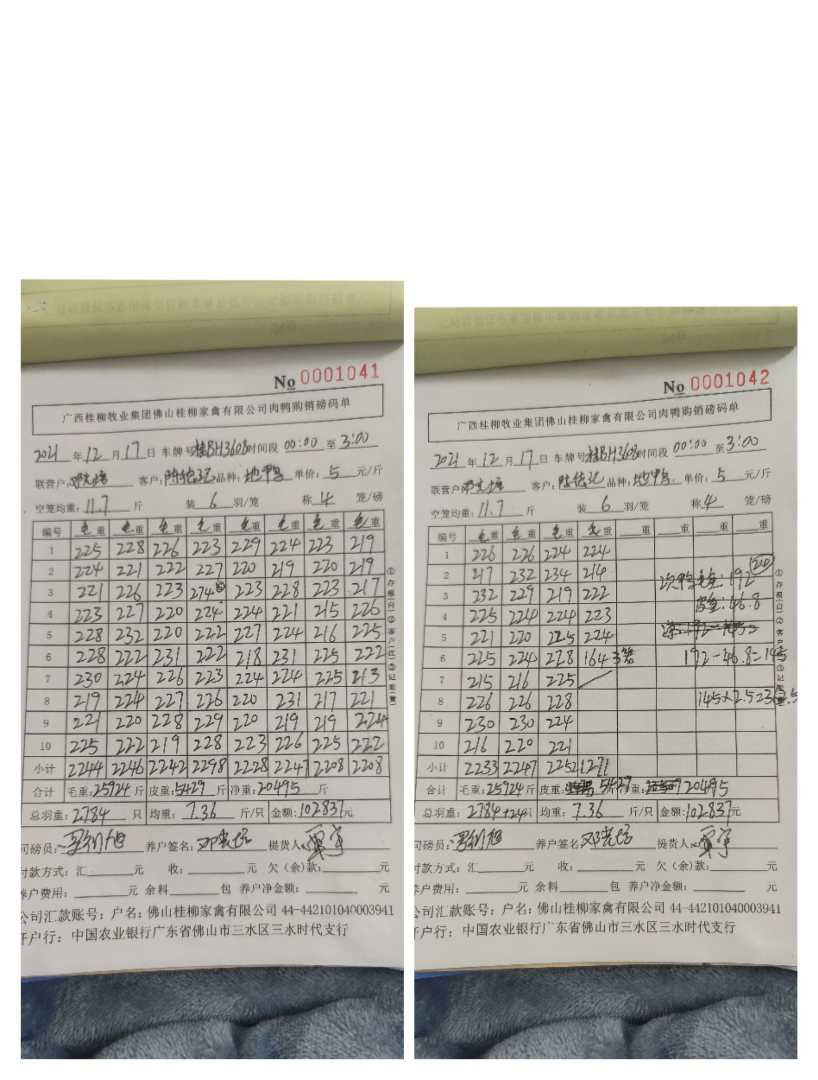 No 0001041
广西桂柳牧业集团佛山桂柳家禽有限公司肉鸭购销磅码单
2021 年 12 月 17 日 车牌号 桂BH3608 时间段 00:00 至 3:00
联营户: 客户: 品种: 单价: 5 元/斤
空笼均重: 11.7 斤 装 6 羽/笼 称 4 笼/磅
编号 毛重 毛重 毛重 毛重 毛重 毛重 毛重 毛重
1 225 228 226 223 229 224 223 219
2 224 221 222 227 220 219 220 219
3 221 226 223 274 223 228 223 217
4 223 227 220 224 224 221 215 226
5 228 232 220 222 227 224 216 225
6 228 222 231 222 218 231 225 222
7 230 224 226 223 224 224 225 213
8 219 224 227 226 220 231 217 221
9 221 220 228 229 220 219 219 224
10 225 222 219 228 223 226 225 222
小计 2244 2246 2242 2298 2228 2247 2208 2208
合计 毛重: 25924 斤 皮重: 5429 斤 净重: 20495 斤
总羽重: 2784 只 均重: 7.36 斤/只 金额: 102837元
司磅员: 养户签名: 邓 提货人:
付款方式: 汇 元 收: 元 欠(余)款: 元
养户费用: 元 余料 包 养户净金额: 元
公司汇款账号: 户名: 佛山桂柳家禽有限公司 44-442101040003941
开户行: 中国农业银行广东省佛山市三水区三水时代支行
No 0001042
广西桂柳牧业集团佛山桂柳家禽有限公司肉鸭购销磅码单
2021 年 12 月 17 日 车牌号 桂BH3608 时间段 00:00 至 3:00
联营户: 客户: 品种: 单价: 5 元/斤
空笼均重: 11.7 斤 装 6 羽/笼 称 4 笼/磅
编号 毛重 毛重 毛重 毛重 重 重 重 重
1 226 226 224 224
2 217 232 234 214 次鸭毛重: 192 (24)
3 232 229 219 222 皮重: 46.8
4 225 224 224 223
5 221 220 225 224
6 225 224 228 164 3笼 192-46.8=145
7 215 216 225
8 226 226 228 145×2.5
9 230 230 224
10 216 220 221
小计 2233 2247 2252 1271
合计 毛重: 25924 斤 皮重: 5429 斤 净重: 20495
总羽重: 2784+24只 均重: 7.36 斤/只 金额: 102837元
司磅员: 养户签名: 邓 提货人:
付款方式: 汇 元 收: 元 欠(余)款: 元
养户费用: 元 余料 包 养户净金额: 元
公司汇款账号: 户名: 佛山桂柳家禽有限公司 44-442101040003941
开户行: 中国农业银行广东省佛山市三水区三水时代支行